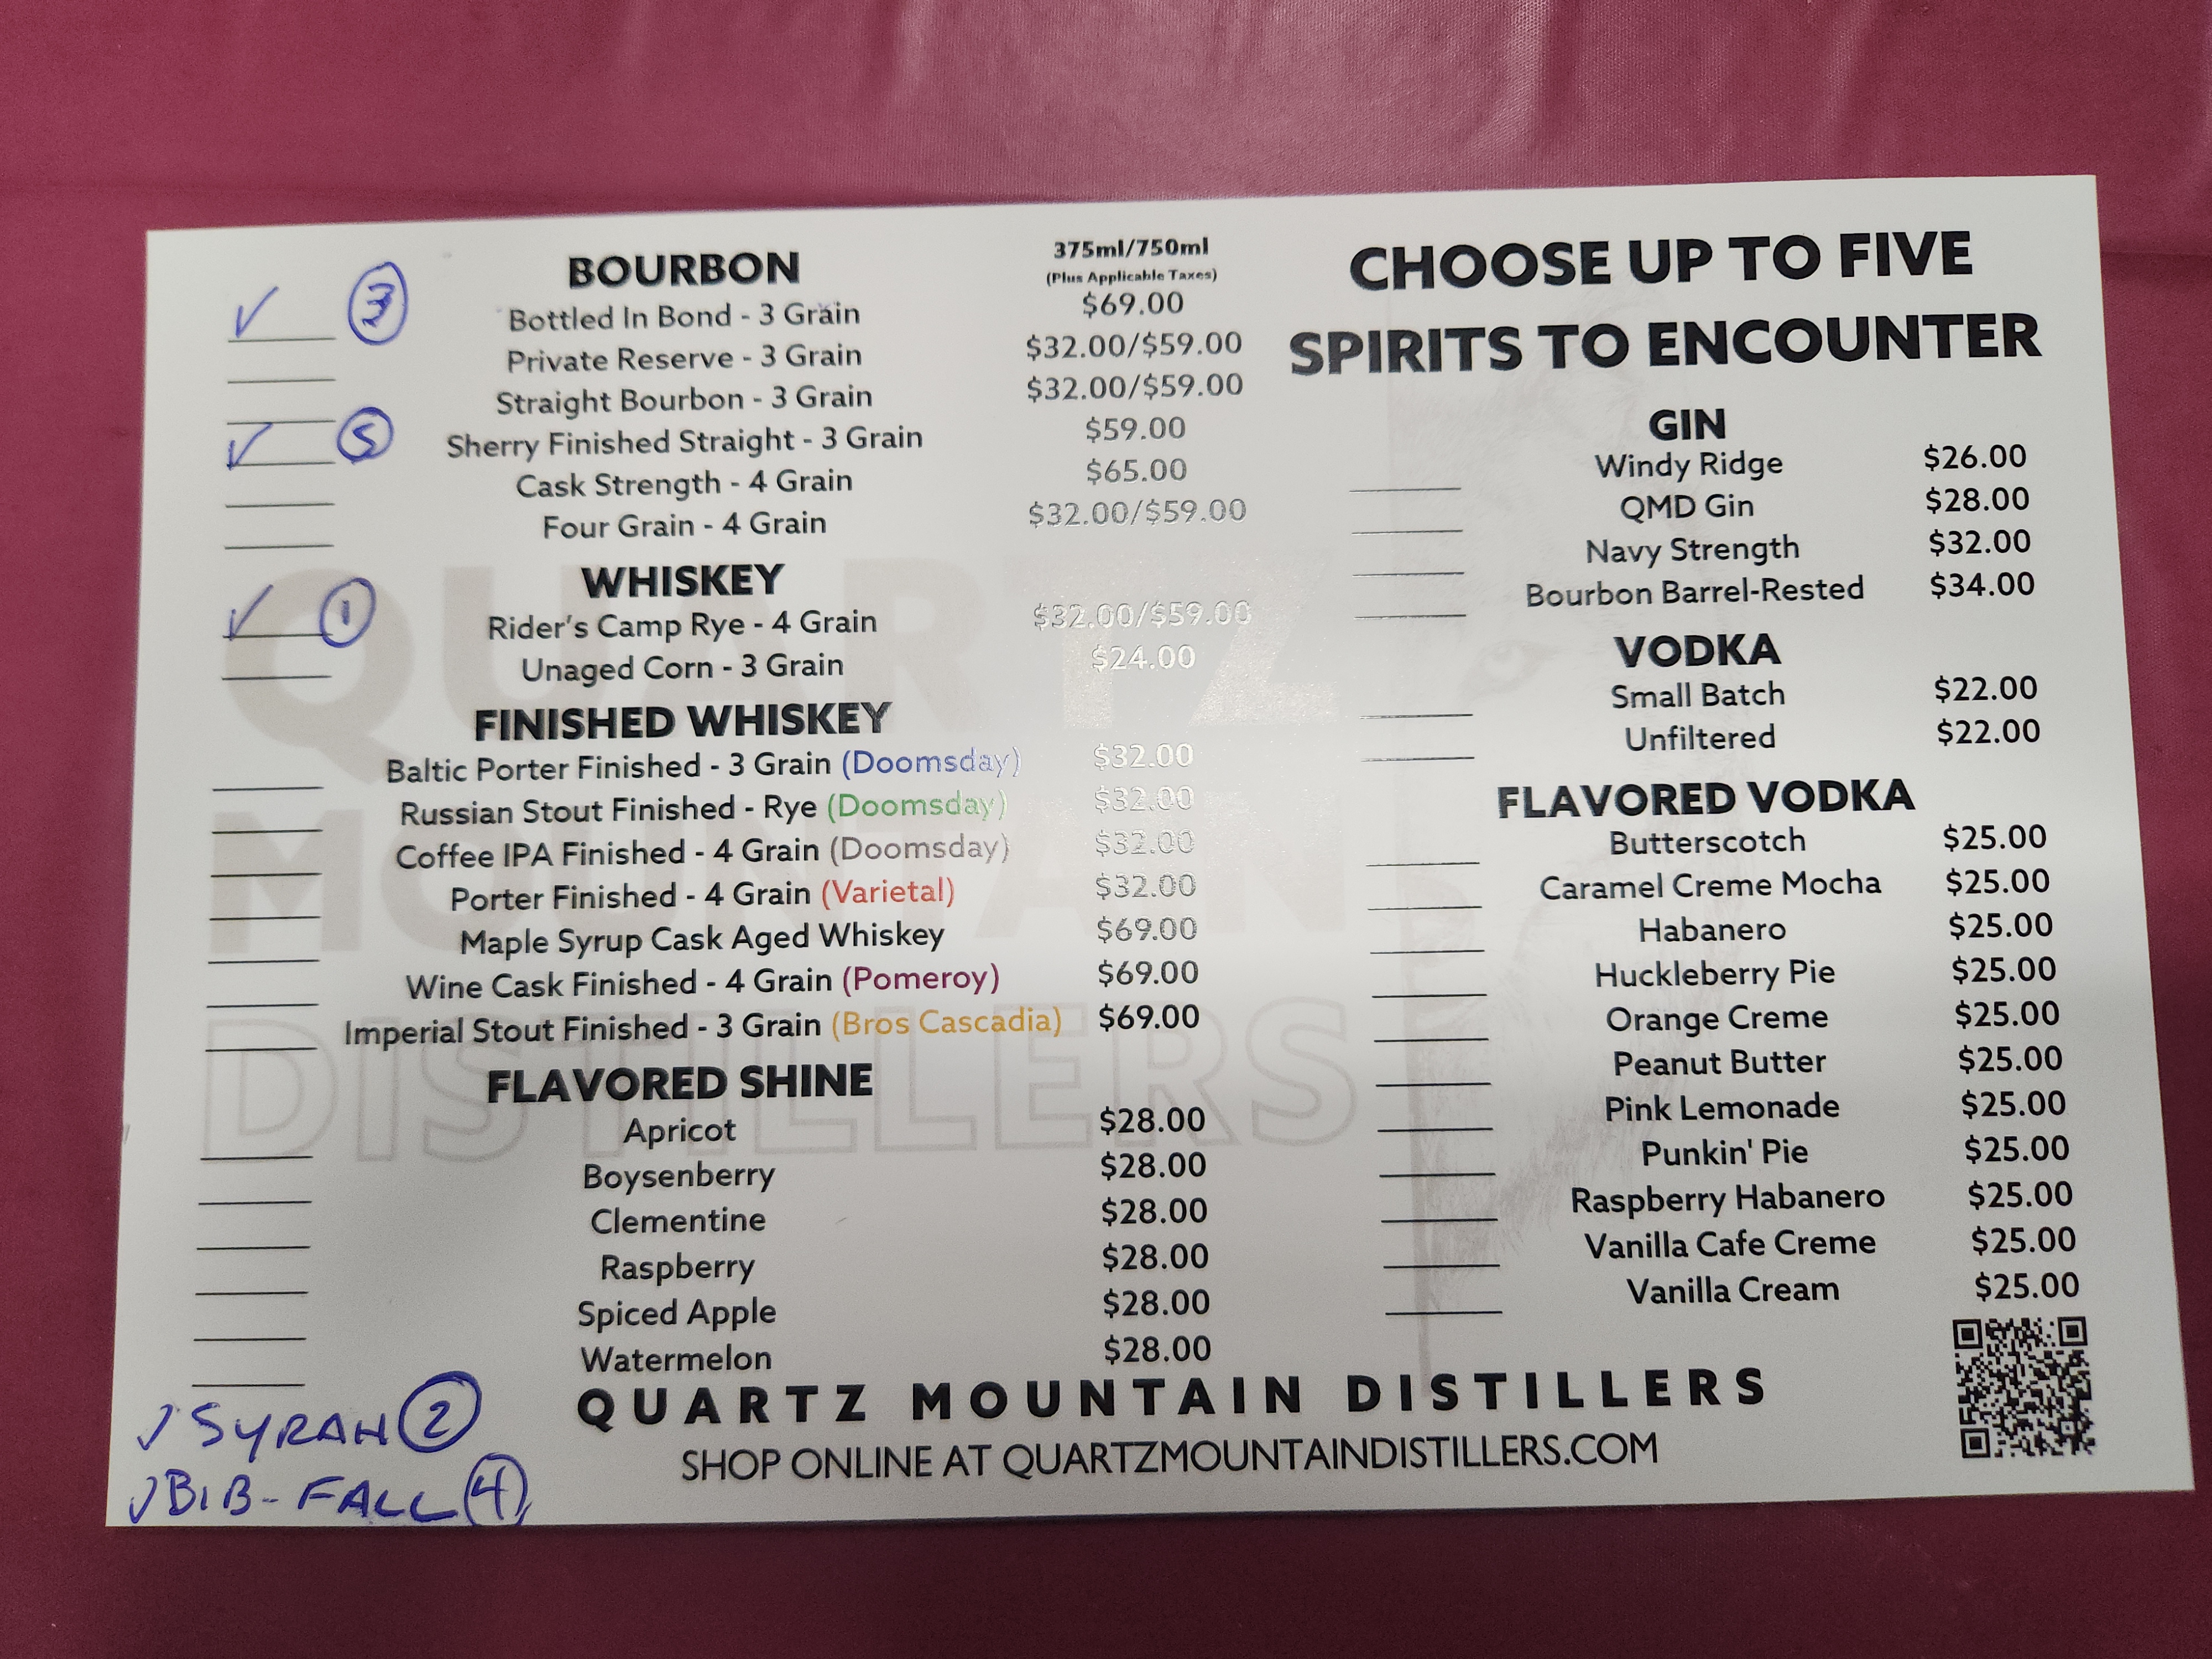 BOURBON
375ml/750ml
(Plus Applicable Taxes)
✓ 3 Bottled In Bond - 3 Grain $69.00
Private Reserve - 3 Grain $32.00/$59.00
Straight Bourbon - 3 Grain $32.00/$59.00
✓ 5 Sherry Finished Straight - 3 Grain $59.00
Cask Strength - 4 Grain $65.00
Four Grain - 4 Grain $32.00/$59.00
WHISKEY
✓ 1 Rider's Camp Rye - 4 Grain $32.00/$59.00
Unaged Corn - 3 Grain $24.00
FINISHED WHISKEY
Baltic Porter Finished - 3 Grain (Doomsday) $32.00
Russian Stout Finished - Rye (Doomsday) $32.00
Coffee IPA Finished - 4 Grain (Doomsday) $32.00
Porter Finished - 4 Grain (Varietal) $32.00
Maple Syrup Cask Aged Whiskey $69.00
Wine Cask Finished - 4 Grain (Pomeroy) $69.00
Imperial Stout Finished - 3 Grain (Bros Cascadia) $69.00
FLAVORED SHINE
Apricot $28.00
Boysenberry $28.00
Clementine $28.00
Raspberry $28.00
Spiced Apple $28.00
Watermelon $28.00
✓ SYRAH 2
✓ BIB - FALL 4
CHOOSE UP TO FIVE
SPIRITS TO ENCOUNTER
GIN
Windy Ridge $26.00
QMD Gin $28.00
Navy Strength $32.00
Bourbon Barrel-Rested $34.00
VODKA
Small Batch $22.00
Unfiltered $22.00
FLAVORED VODKA
Butterscotch $25.00
Caramel Creme Mocha $25.00
Habanero $25.00
Huckleberry Pie $25.00
Orange Creme $25.00
Peanut Butter $25.00
Pink Lemonade $25.00
Punkin' Pie $25.00
Raspberry Habanero $25.00
Vanilla Cafe Creme $25.00
Vanilla Cream $25.00
QUARTZ MOUNTAIN DISTILLERS
SHOP ONLINE AT QUARTZMOUNTAINDISTILLERS.COM
QUARTZ
MOUNTAIN
DISTILLERS